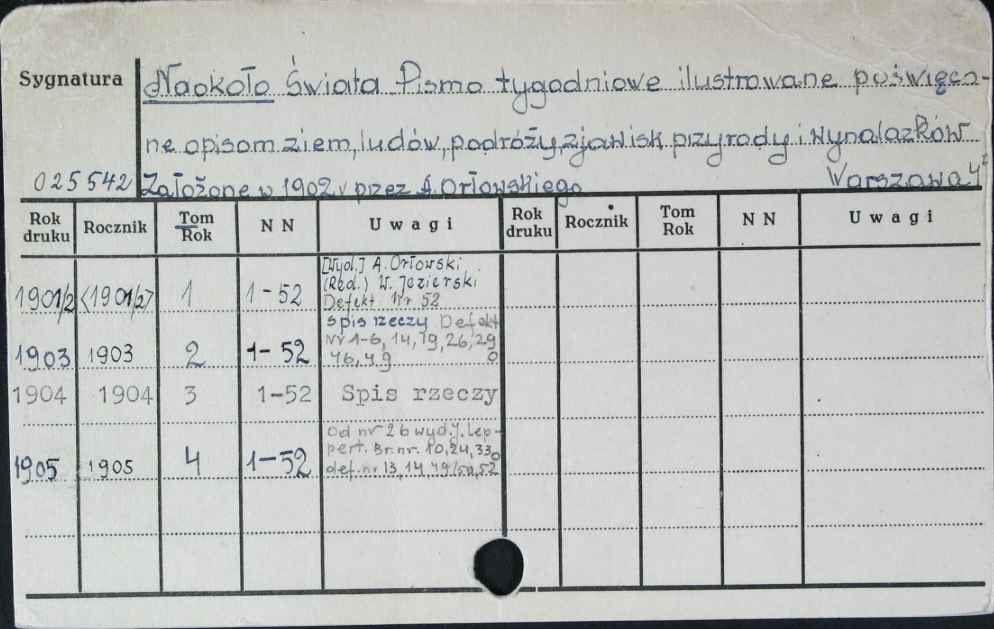 Sygnatura
Naokoło Świata Pismo tygodniowe ilustrowane poświęco-
ne opisom ziem, ludów, podróży, zjawisk przyrody i wynalazków
025542 Założone w 1902 r przez A. Orłowskiego Warszawa 4°
Rok druku Rocznik Tom Rok NN Uwagi Rok druku Rocznik Tom Rok NN Uwagi
[Wyd.] A. Orłowski
(Red.) W. Jezierski
1901/2 <1901/2> 1 1-52 Defekt. Nr 52
spis rzeczy Defekt
1903 1903 2 1-52 Nr 1-6, 14, 19, 26, 29
46, 49
1904 1904 3 1-52 Spis rzeczy
Od nr 26 wyd. J. Lep-
1905 1905 4 1-52 pert. Br. nr. 10, 24, 33
def. nr 13, 14, 49/50, 52